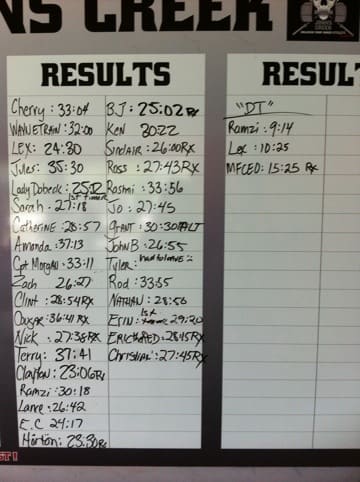 NS CREEK
RESULTS
Cherry: 33:04
WAYNETRAIN: 32:00
LEX: 24:30
Jules: 35:30
Lady Dobeck: 25:02
1st timer
Sarah: 27:18
Catherine: 28:57
Amanda: 37:13
Cpt Morgan: 33:11
Zach 26:27
Clint: 28:54 RX
Cougar: 36:41 RX
Nick: 27:38 RX
Terry: 37:41
Clayton: 23:06 Rx
Ramzi: 30:18
Lance: 26:42
E.C 24:17
Horton: 23:30 Rx
BJ: 25:02 Rx
KEN 30:22
Sinclair: 26:00 RX
Ross: 27:43 RX
Rashmi: 33:56
Jo: 27:45
GRANT: 30:30 ALT
John B: 26:55
Tyler: had to leave :(
Rod: 33:35
NATHAN: 28:50
1st
Erin: 29:20
ERICKRED: 28:45 RX
Christian: 27:45 RX
RESULT
"DT"
Ramzi: 9:14
Lex: 10:25
MFCEO: 15:25 Rx